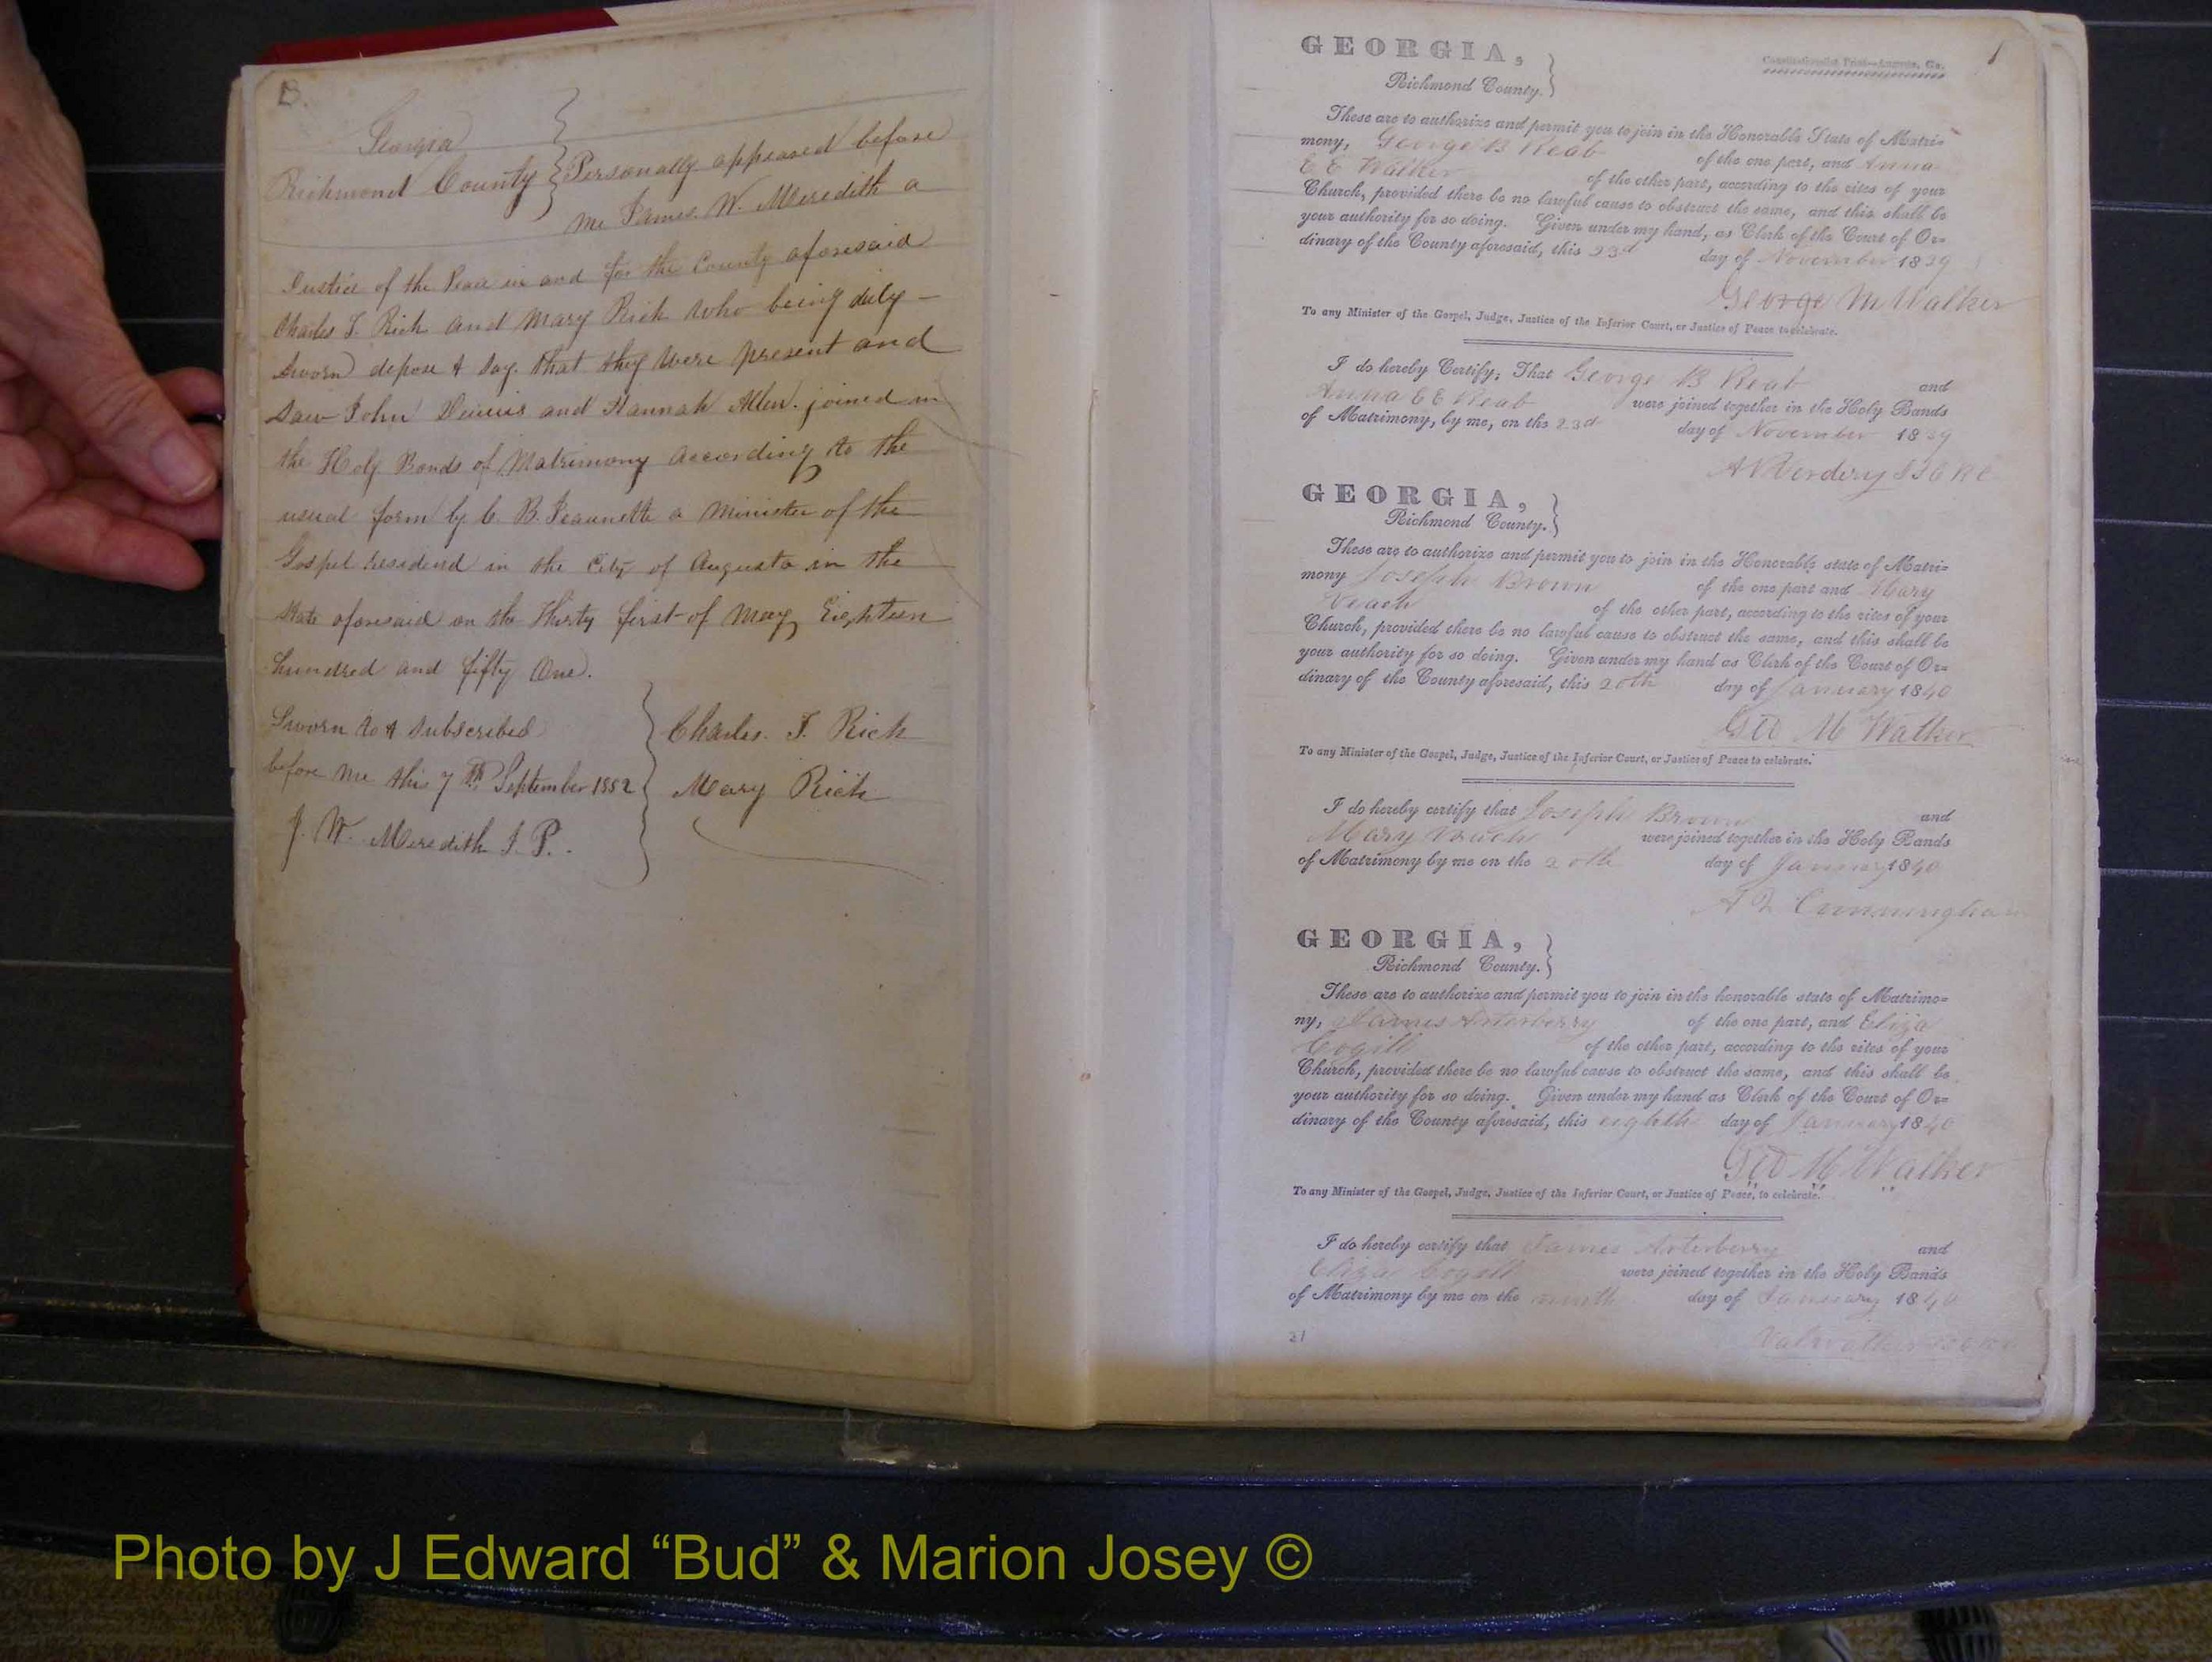 B.
Georgia
Richmond County
Personally appeared before
me James W. Meredith a
Justice of the Peace in and for the County aforesaid
Charles T. Rich and Mary Rich who being duly
Sworn depose & Say. that they were present and
Saw John Dennis and Hannah Allen. joined in
the Holy Bonds of Matrimony according to the
usual form by C. B. Jeannette a Minister of the
Gospel residend in the City of Augusta in the
State aforesaid on the Thirty first of May Eighteen
hundred and fifty One.
Sworn to & Subscribed
before me this 7th September 1852
J. W. Meredith J. P.
Charles. T. Rich
Mary Rich
1
GEORGIA,
Richmond County.
These are to authorize and permit you to join in the Honorable State of Matri-
mony, George B Reab of the one part, and Anna
E E Walker of the other part, according to the rites of your
Church, provided there be no lawful cause to obstruct the same, and this shall be
your authority for so doing. Given under my hand, as Clerk of the Court of Or-
dinary of the County aforesaid, this 23d day of November 1839
George M Walker
To any Minister of the Gospel, Judge, Justice of the Inferior Court, or Justice of Peace to celebrate.
I do hereby Certify; That George B Reab and
Anna E E Reab were joined together in the Holy Bands
of Matrimony, by me, on the 23d day of November 1839
GEORGIA,
Richmond County.
These are to authorize and permit you to join in the Honorable state of Matri-
mony Joseph Brown of the one part and Mary
Veach of the other part, according to the rites of your
Church, provided there be no lawful cause to obstruct the same, and this shall be
your authority for so doing. Given under my hand as Clerk of the Court of Or-
dinary of the County aforesaid, this 20th day of January 1840
Geo M Walker
To any Minister of the Gospel, Judge, Justice of the Inferior Court, or Justice of Peace to celebrate.
I do hereby certify that Joseph Brown and
Mary Veach were joined together in the Holy Bands
of Matrimony by me on the 20th day of January 1840
Cunningham
GEORGIA,
Richmond County.
These are to authorize and permit you to join in the honorable state of Matrimo-
ny, James Arterberry of the one part, and Eliza
Cogill of the other part, according to the rites of your
Church, provided there be no lawful cause to obstruct the same, and this shall be
your authority for so doing. Given under my hand as Clerk of the Court of Or-
dinary of the County aforesaid, this eighth day of January 1840
Geo M Walker
To any Minister of the Gospel, Judge, Justice of the Inferior Court, or Justice of Peace, to celebrate.
I do hereby certify that James Arterberry and
Eliza Cogill were joined together in the Holy Bands
of Matrimony by me on the ninth day of January 1840
21
Photo by J Edward “Bud” & Marion Josey ©